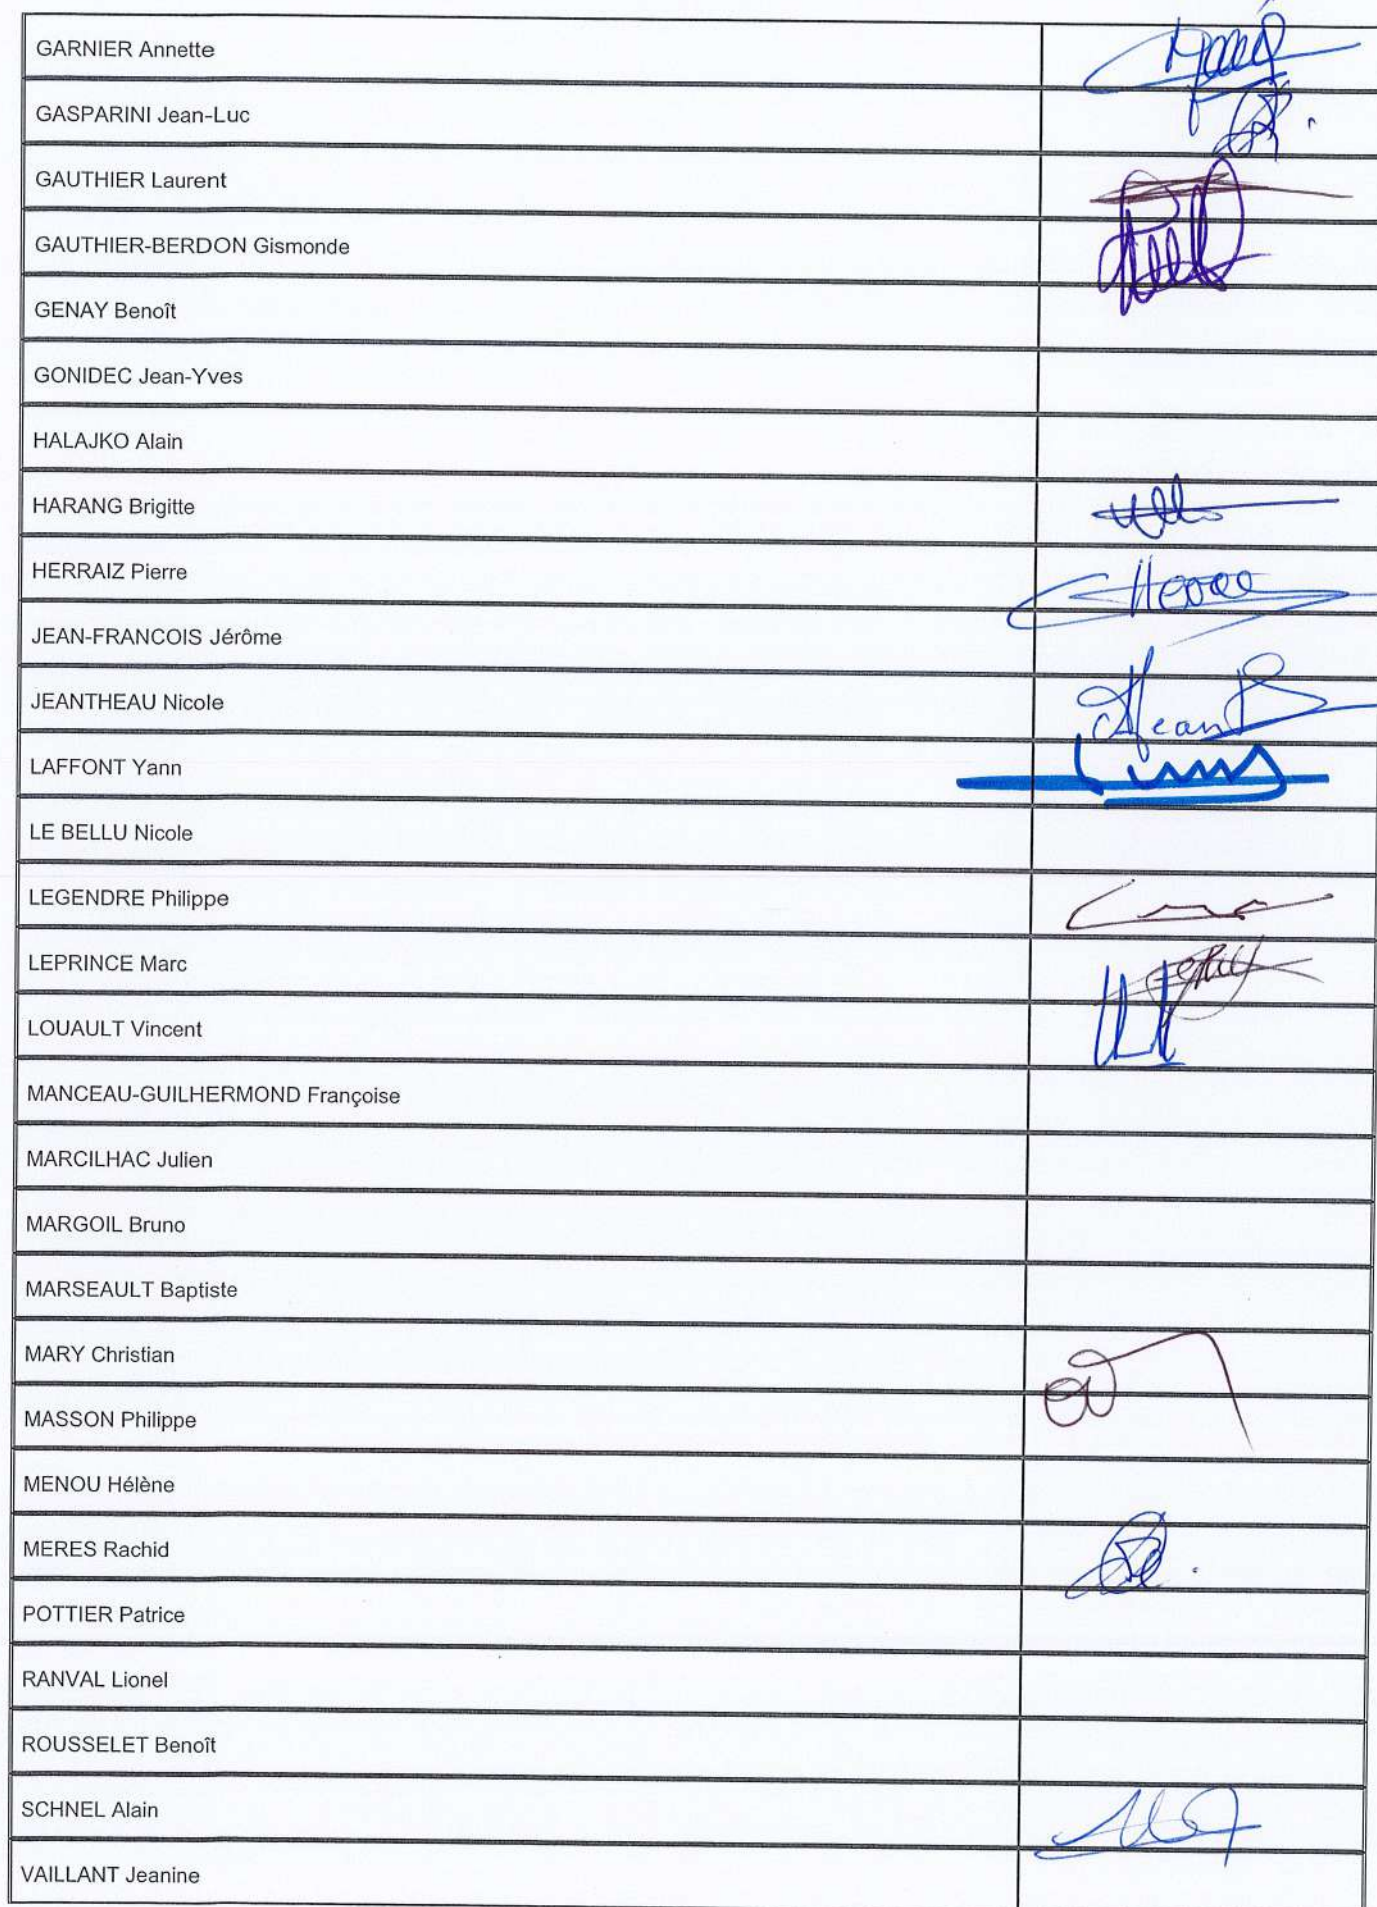 GARNIER Annette
GASPARINI Jean-Luc
GAUTHIER Laurent
GAUTHIER-BERDON Gismonde
GENAY Benoît
GONIDEC Jean-Yves
HALAJKO Alain
HARANG Brigitte
HERRAIZ Pierre
JEAN-FRANCOIS Jérôme
JEANTHEAU Nicole
LAFFONT Yann
LE BELLU Nicole
LEGENDRE Philippe
LEPRINCE Marc
LOUAULT Vincent
MANCEAU-GUILHERMOND Françoise
MARCILHAC Julien
MARGOIL Bruno
MARSEAULT Baptiste
MARY Christian
MASSON Philippe
MENOU Hélène
MERES Rachid
POTTIER Patrice
RANVAL Lionel
ROUSSELET Benoît
SCHNEL Alain
VAILLANT Jeanine